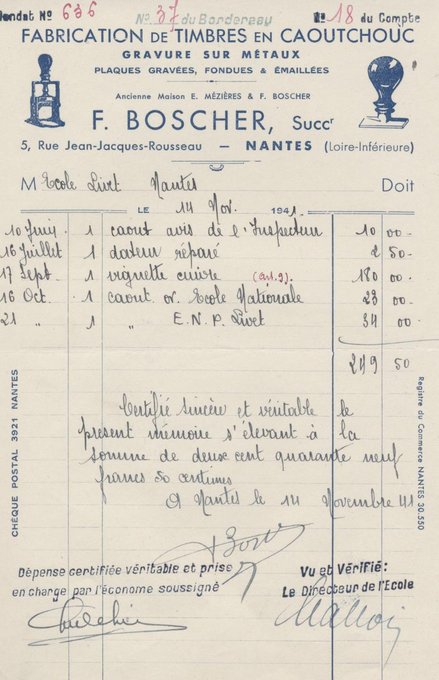 Mandat Nº 636 Nº 37 du Bordereau Nº 18 du Compte
FABRICATION DE TIMBRES EN CAOUTCHOUC
GRAVURE SUR MÉTAUX
PLAQUES GRAVÉES, FONDUES & ÉMAILLÉES
Ancienne Maison E. MÉZIÈRES & F. BOSCHER
F. BOSCHER, Succr
5, Rue Jean-Jacques-Rousseau — NANTES (Loire-Inférieure)
M Ecole Livet Nantes Doit
LE 14 Nov. 1941.
10 Juin 1 caout avis de l'Inspecteur 10 00
16 Juillet 1 dateur réparé 2 50
17 Sept. 1 vignette cuivre (art. 9) 180 00
16 Oct. 1 caout. or. Ecole Nationale 23 00
21 " 1 " E.N.P. Livet 34 00
249 50
Certifié sincère et véritable le
présent mémoire s'élevant à la
somme de deux cent quarante neuf
francs 50 centimes
A Nantes le 14 Novembre 41
CHÈQUE POSTAL 3921 NANTES
Registre du Commerce NANTES 30.550
Dépense certifiée véritable et prise
en charge par l'économe soussigné
Vu et Vérifié:
Le Directeur de l'Ecole